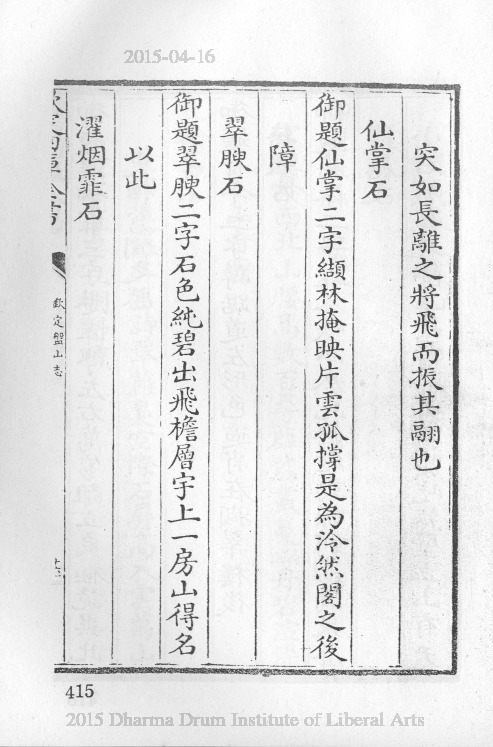 2015-04-16
突如長離之將飛而振其翮也
仙掌石
御題仙掌二字纈林掩映片雲孤撐是為泠然閣之後
障
翠腴石
御題翠腴二字石色純碧出飛檐層宇上一房山得名
以此
濯烟霏石
欽定四庫全書
欽定盤山志
415
2015 Dharma Drum Institute of Liberal Arts